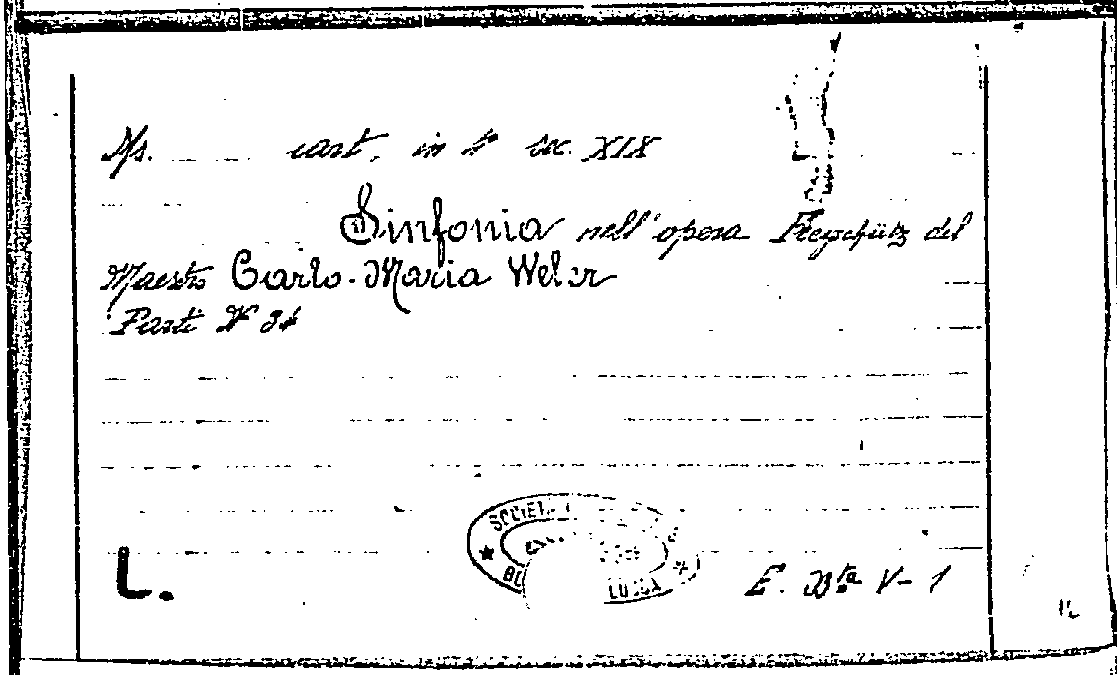 Ms. cart. in 4° sec. XIX
Sinfonia nell'opera Freyschütz del
Maestro Carlo Maria Weber
Parti N° 34
SOCIETÀ
LUCCA
L.
E. Bta V-1